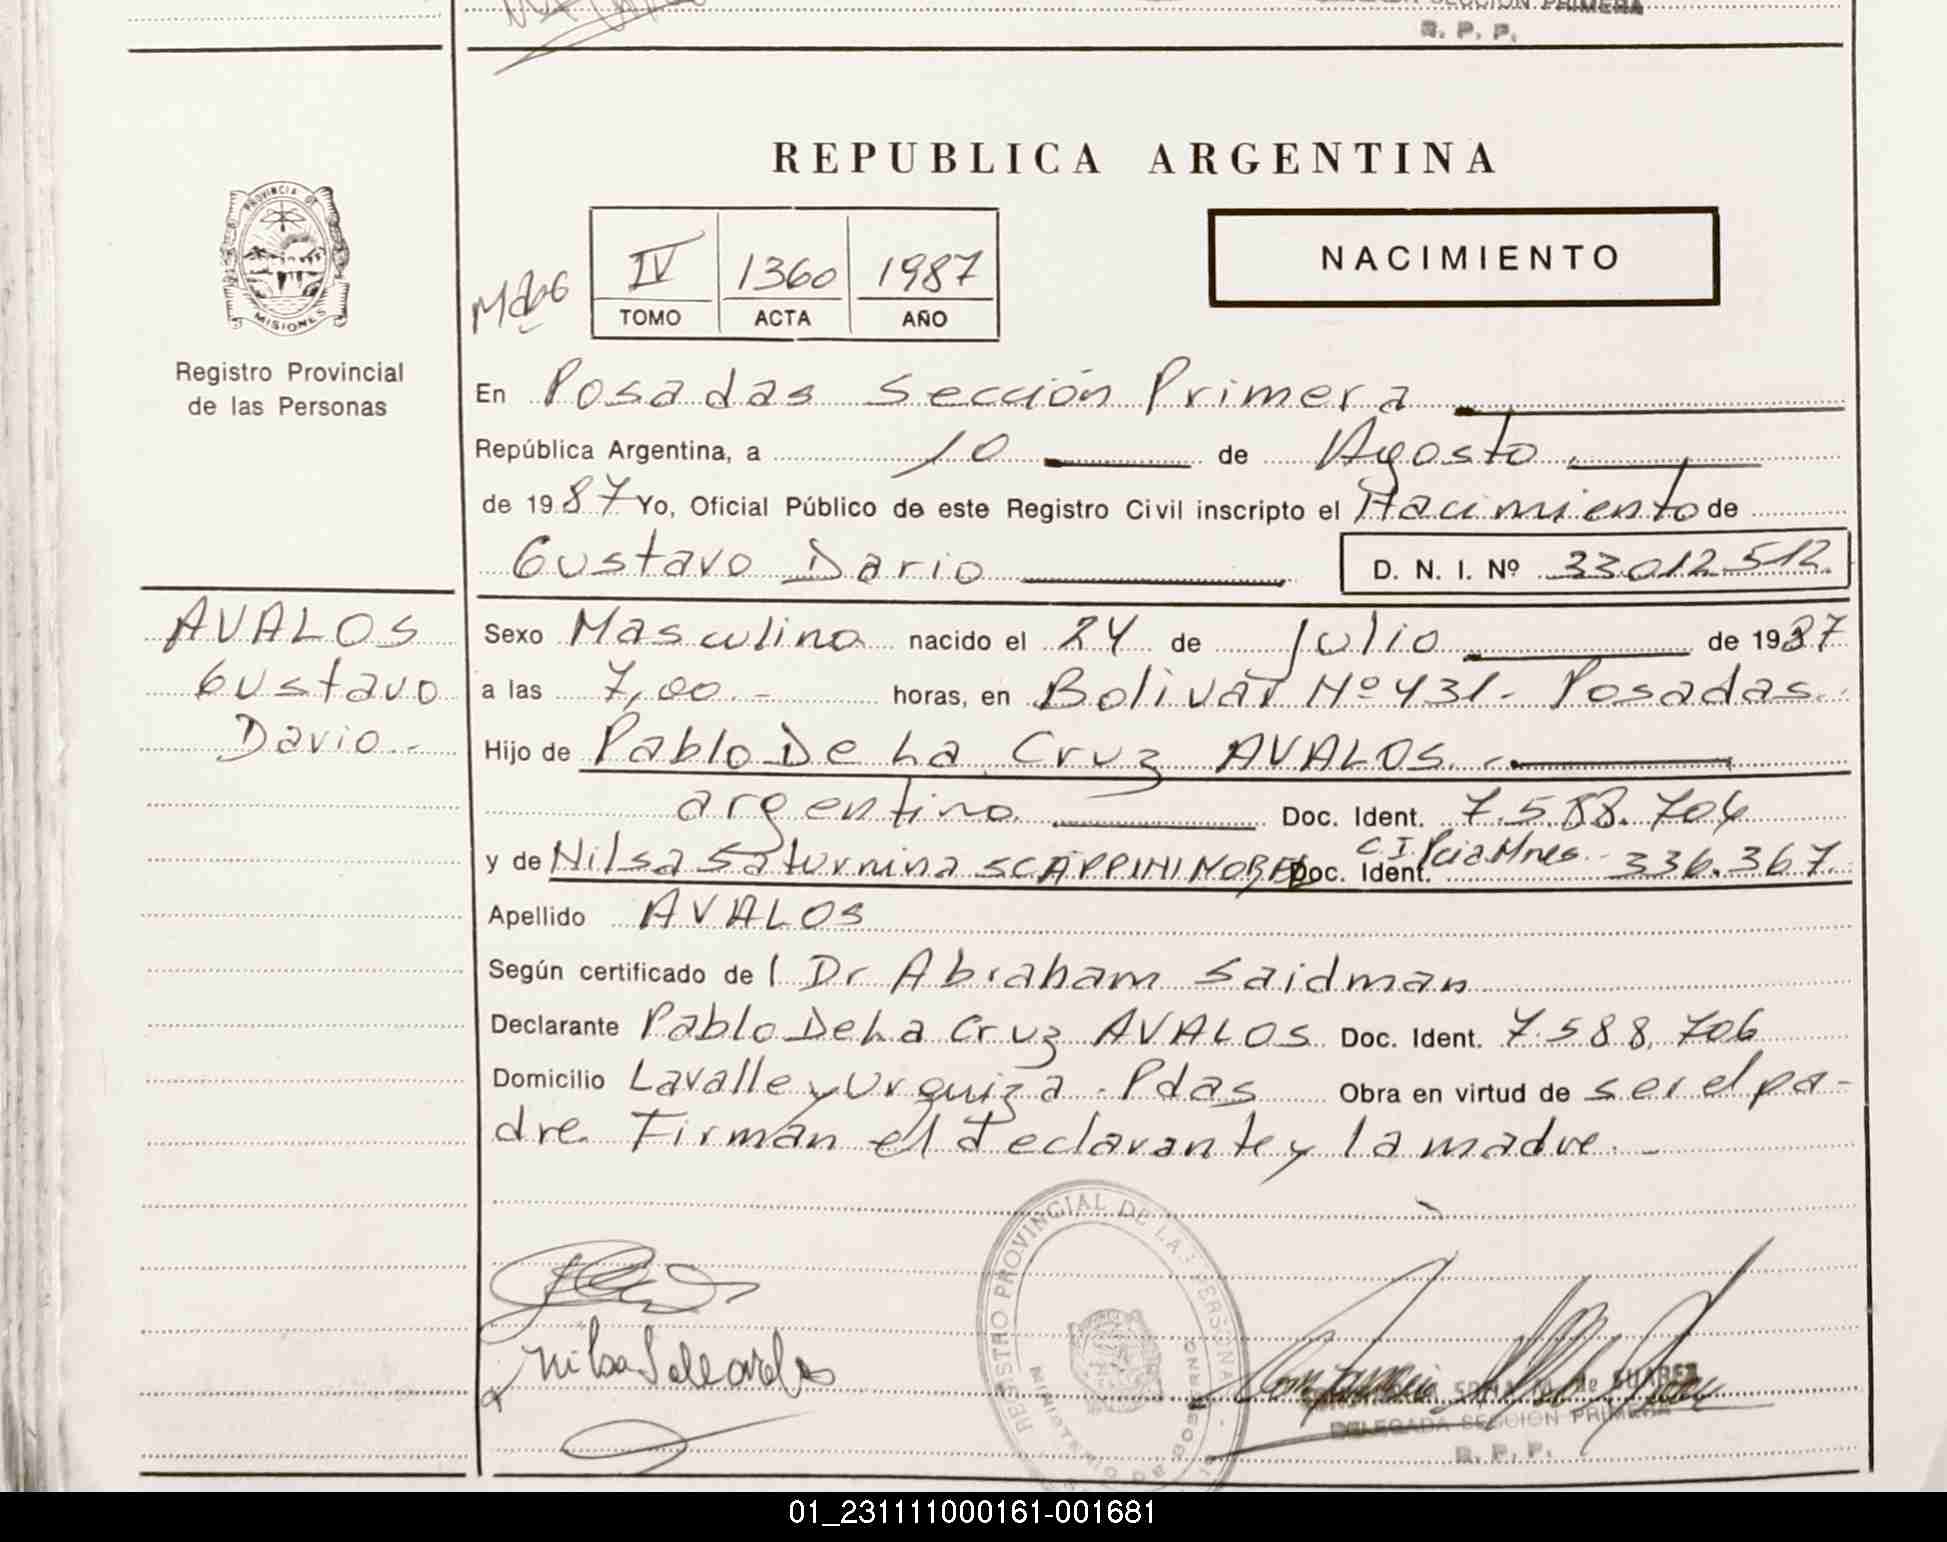 SECCION PRIMERA
R. P. P.
REPUBLICA ARGENTINA
PROVINCIA DE
MISIONES
Registro Provincial
de las Personas
IV 1360 1987
TOMO ACTA AÑO
NACIMIENTO
En Posadas Sección Primera
República Argentina, a 10 de Agosto
de 1987 Yo, Oficial Público de este Registro Civil inscripto el Nacimiento de
Gustavo Dario D. N. I. Nº 33012512
AVALOS
Gustavo
Dario.-
Sexo Masculino nacido el 24 de Julio de 1987
a las 7,00.- horas, en Bolivar Nº 431- Posadas.
Hijo de Pablo De La Cruz AVALOS.-
argentino Doc. Ident. 7.588.706
y de Nilsa Saturnina SCAPPINI NOBEL Doc. Ident. C.I. Pcia Mnes.- 336.367.
Apellido AVALOS
Según certificado de l Dr Abraham Saidman
Declarante Pablo De La Cruz AVALOS Doc. Ident. 7.588.706
Domicilio Lavalle y Urquiza - Pdas Obra en virtud de ser el pa-
dre. Firman el declarante y la madre.-
REGISTRO PROVINCIAL DE LAS PERSONAS
MINISTERIO DE GOBIERNO
de SUAREZ
DELEGADA SECCION PRIMERA
R. P. P.
01_231111000161-001681